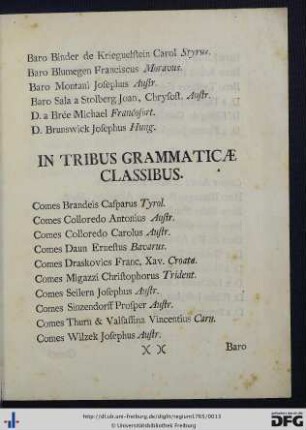 Baro Binder de Krieguelstein Carol Styrus.
Baro Blumegen Franciscus Moravus.
Baro Montani Josephus Austr.
Baro Sala a Stolberg Joan, Chrysost. Austr.
D. a Brée Michael Francofort.
D. Brunswick Josephus Hung.
IN TRIBUS GRAMMATICÆ
CLASSIBUS.
Comes Brandeis Casparus Tyrol.
Comes Colloredo Antonius Austr.
Comes Colloredo Carolus Austr.
Comes Daun Ernestus Bavarus.
Comes Draskovics Franc, Xav. Croata.
Comes Migazzi Christophorus Trident.
Comes Seilern Josephus Austr.
Comes Sinzendorff Prosper Austr.
Comes Thurn & Valsassina Vincentius Carn.
Comes Wilzek Josephus Austr.
X X Baro
http://dl.ub.uni-freiburg.de/diglit/regium1765/0013
© Universitätsbibliothek Freiburg
gefördert durch die
DFG